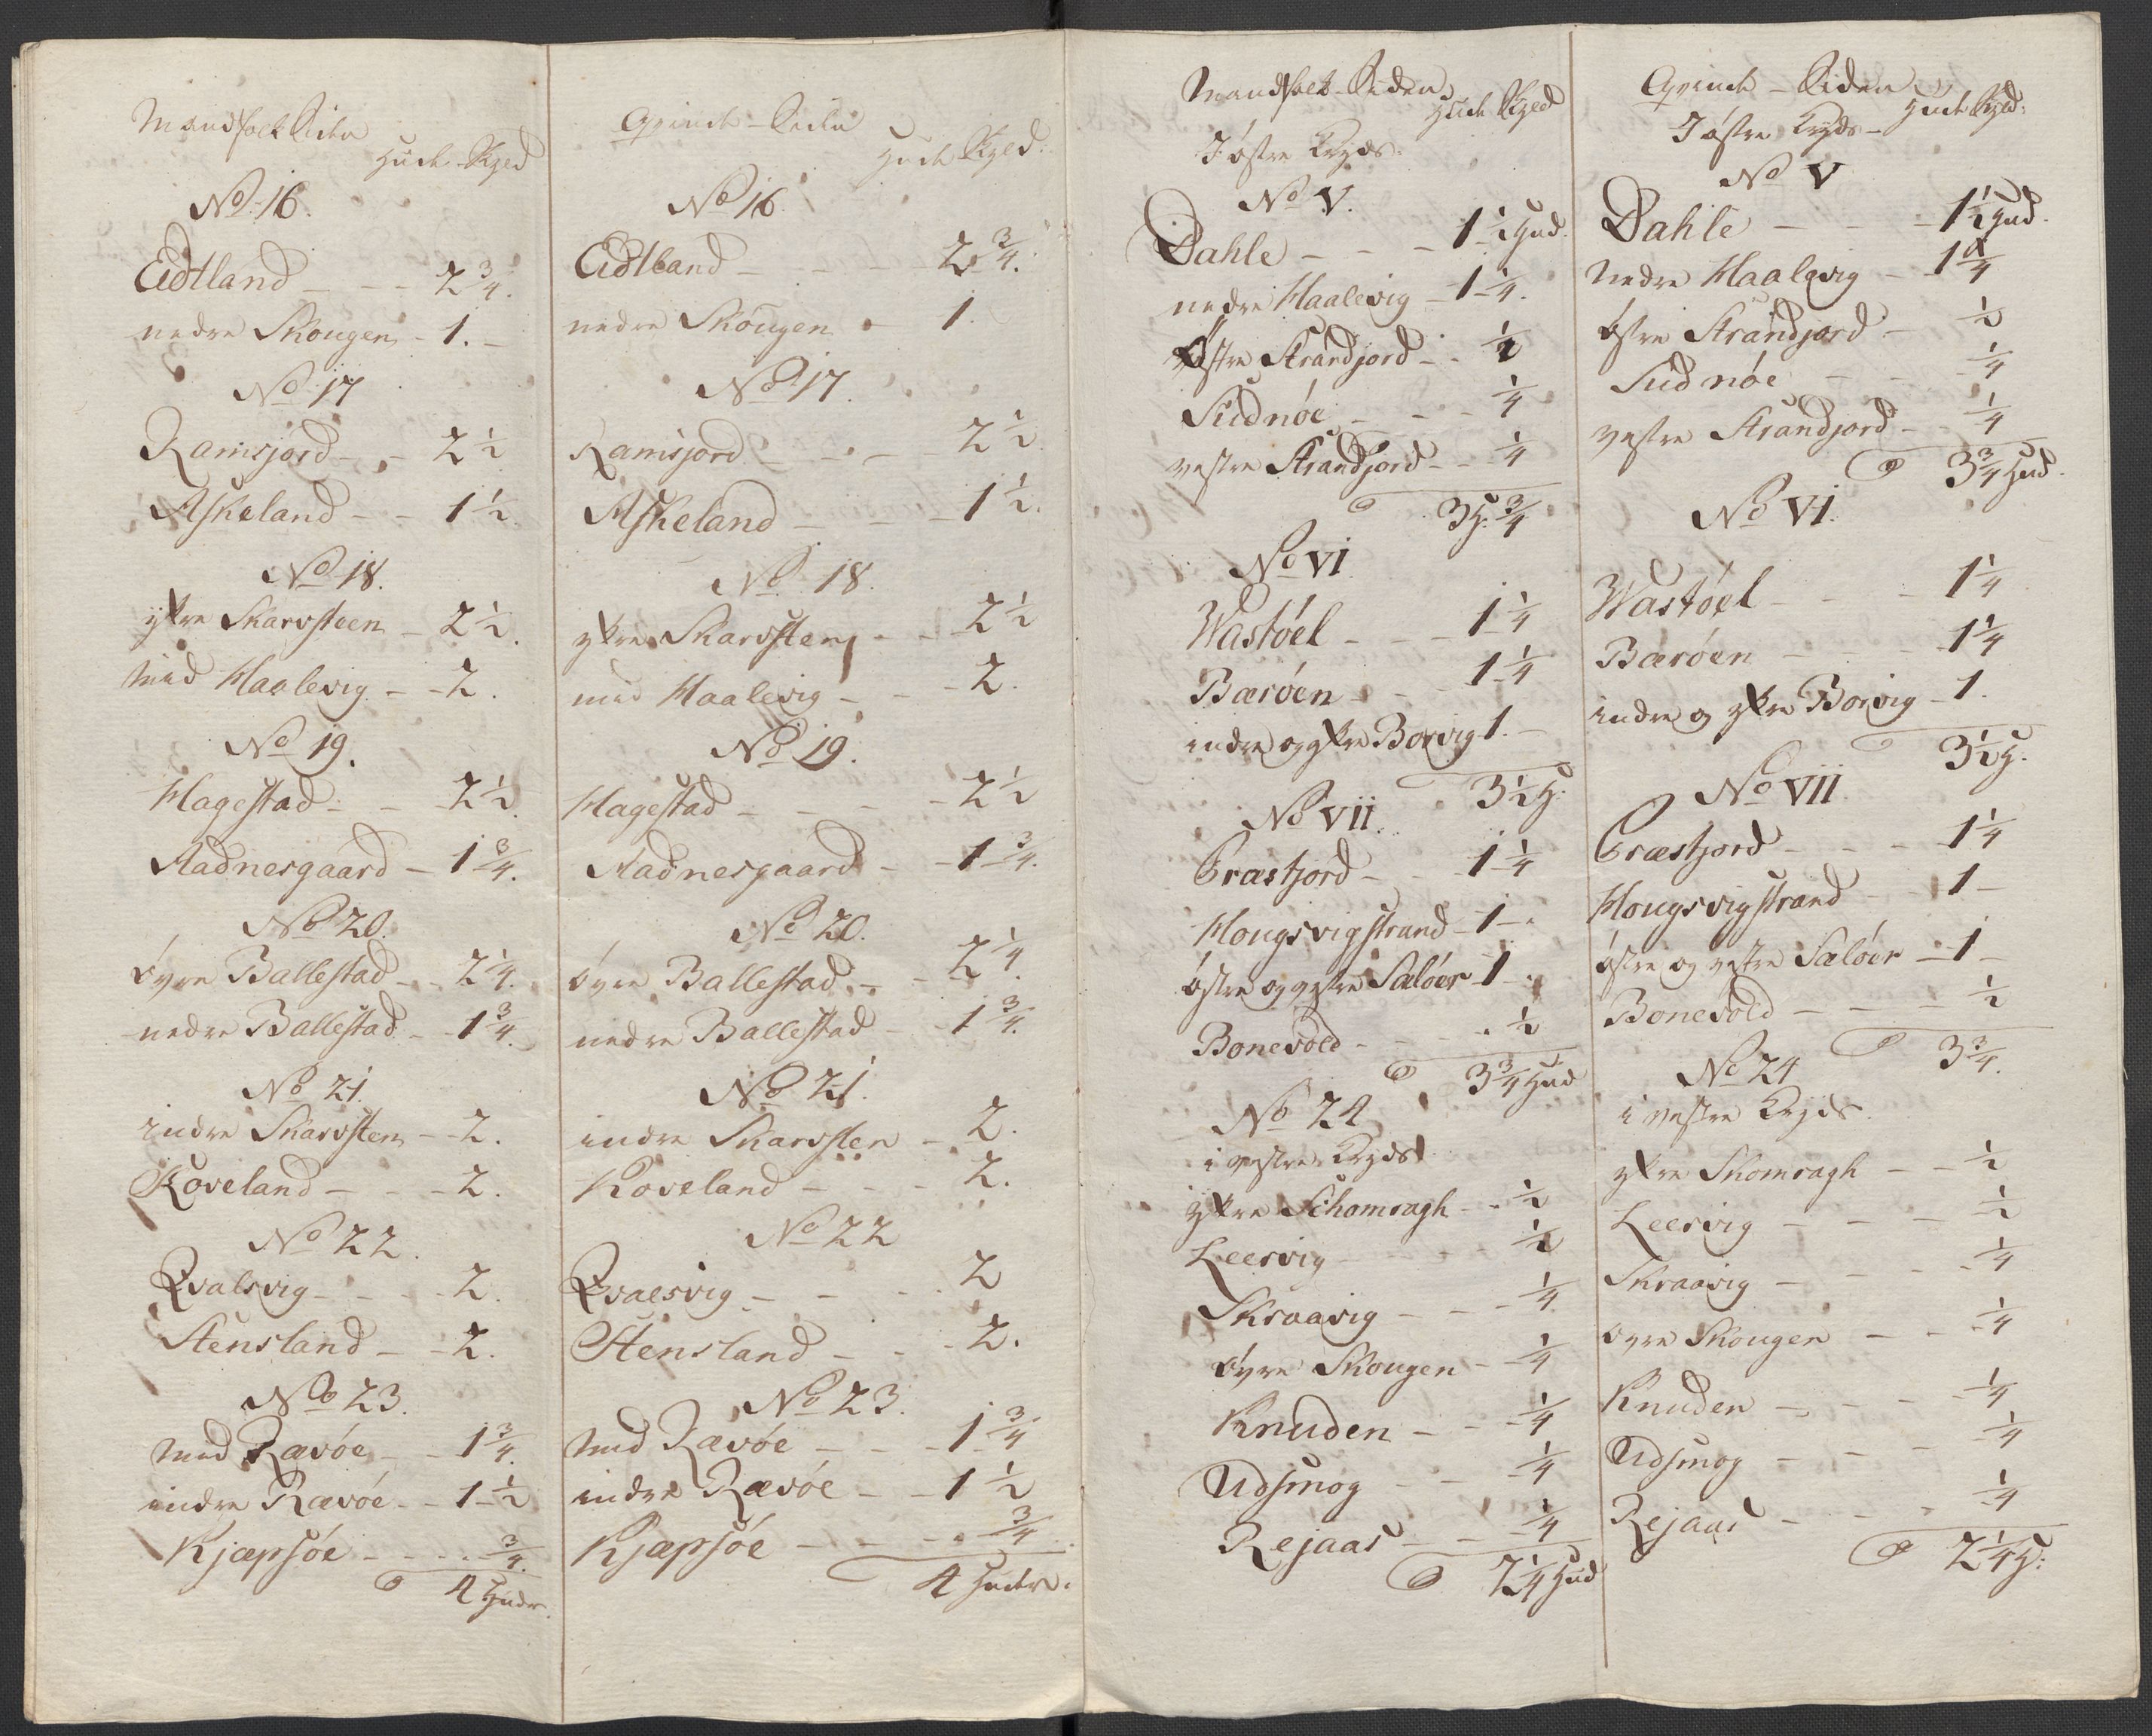 Mandfolk Siden
Hude Skyld
No 16.
Eidtland - - - 2 3/4.
nedre Skougen - 1. -
No 17
Ramsjord - - 2 1/2
Askeland - - 1 1/2.
No 18.
ÿtre Skarvsteen - 2 1/2.
Med Haalevig - - 2.
No 19.
Hagestad - - 2 1/2.
Aadnesgaard - 1 3/4.
No 20.
övre Ballestad - - 2 1/4.
nedre Ballestad - - 1 3/4.
No 21.
indre Skarvsten - - 2.
Roveland - - - 2.
No 22.
Qvalsvig - - - 2.
Stensland - - 2.
No 23.
Med Rævöe - - 1 3/4.
indre Rævöe - - 1 1/2
Kjæpsöe - - - - 3/4.
4 Huder.
Qvinde - Siden
Hude Skyld.
No 16.
Eidtland - - - 2 3/4.
nedre Skougen - 1.
No 17.
Ramsjord - - - 2 1/2
Askeland - - - 1 1/2.
No 18.
ytre Skarvsten - - 2 1/2
med Haalevig - - - 2.
No 19.
Hagestad - - - 2 1/2
Aadnesgaard - - 1 3/4.
No 20.
övre Ballestad - - 2 1/4.
nedre Ballestad - - 1 3/4.
No 21.
indre Skarvsten - 2.
Roveland - - - 2.
No 22
Qvalsvig - - - 2
Stensland - - - 2.
No 23.
Med Rævöe - - - 1 3/4
indre Rævöe - - 1 1/2
Kjæpsöe - - - - 3/4.
4 Huder.
Mandfolk - Siden
Hude Skyld
I östre Kryds.
No V.
Dahle - - - 1 1/2 Hud.
nedre Haalevig - 1 1/4.
östre Strandjord - - 1/2
Sudnöe - - - 1/4
vestre Strandjord - - 1/4
3 H. 3/4
No VI
Wastöel - - - 1 1/4
Bæröen - - 1 1/4
indre og ytre Borvig 1. -
3 1/2 H:
No VII.
Præstjord - - 1 1/4
Hougsvigstrand - 1 -
östre og vestre Sælöer 1 -
Bonevold - - - 1/2
3 3/4 Hud
No 24
i vestre Kryds
ÿtre Schomragh - - 1/2
Leervig - - - 1/2
Skraavig - - - 1/4
övre Skougen - - 1/4
Knuden - - - 1/4
Udsmog - - 1/4
Rejaas - - 1/4
2 1/4 Hud
Qvinde - Siden
Hude Skyld:
I östre Kryds -
No V
Dahle - - - 1 1/2 Hud.
Nedre Haalevig - 1 1/4
östre Strandjord - 1/2
Sudnöe - - - 1/4
vestre Strandjord - - 1/4
3 3/4 Hud.
No VI.
Wastöel - - - 1 1/4
Bæröen - - - 1 1/4
indre og ytre Borvig - 1.
3 1/2 H.
No VII
Præstjord - - - 1 1/4
Hougsvigstrand - - 1 -
östre og vestre Sælöer - 1 -
Bonevold - - - 1/2
3 3/4.
No 24
i vestre Kryds.
ytre Skomragh - - 1/2
Leervig - - - 1/2
Skraavig - - - 1/4
övre Skougen - - 1/4
Knuden - - - 1/4
Udsmog - - - 1/4
Rejaas - - - 1/4
2 1/4 H: